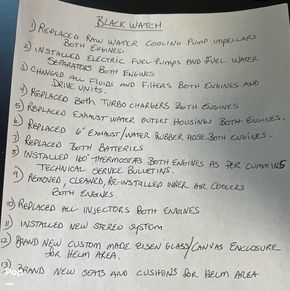 BLACK WATCH
1) REPLACED RAW WATER COOLING PUMP IMPELLARS
BOTH ENGINES.
2) INSTALLED ELECTRIC FUEL PUMPS AND FUEL WATER
SEPARATORS BOTH ENGINES
3) CHANGED ALL FLUIDS AND FILTERS BOTH ENGINES AND
DRIVE UNITS.
4) REPLACED BOTH TURBO CHARGERS BOTH ENGINES
5) REPLACED EXHAUST WATER OUTLET HOUSINGS BOTH ENGINES.
6) REPLACED 6" EXHAUST/WATER RUBBER HOSE BOTH ENGINES.
7) REPLACED BOTH BATTERIES
8) INSTALLED 160° THERMOSTATS BOTH ENGINES AS PER CUMMINS
TECHNICAL SERVICE BULLETINS.
9) REMOVED, CLEANED, RE-INSTALLED INNER AIR COOLERS
BOTH ENGINES
10) REPLACED ALL INJECTORS BOTH ENGINES
11) INSTALLED NEW STEREO SYSTEM
12) BRAND NEW CUSTOM MADE EISEN GLASS/CANVAS ENCLOSURE
FOR HELM AREA.
13) BRAND NEW SEATS AND CUSHIONS FOR HELM AREA